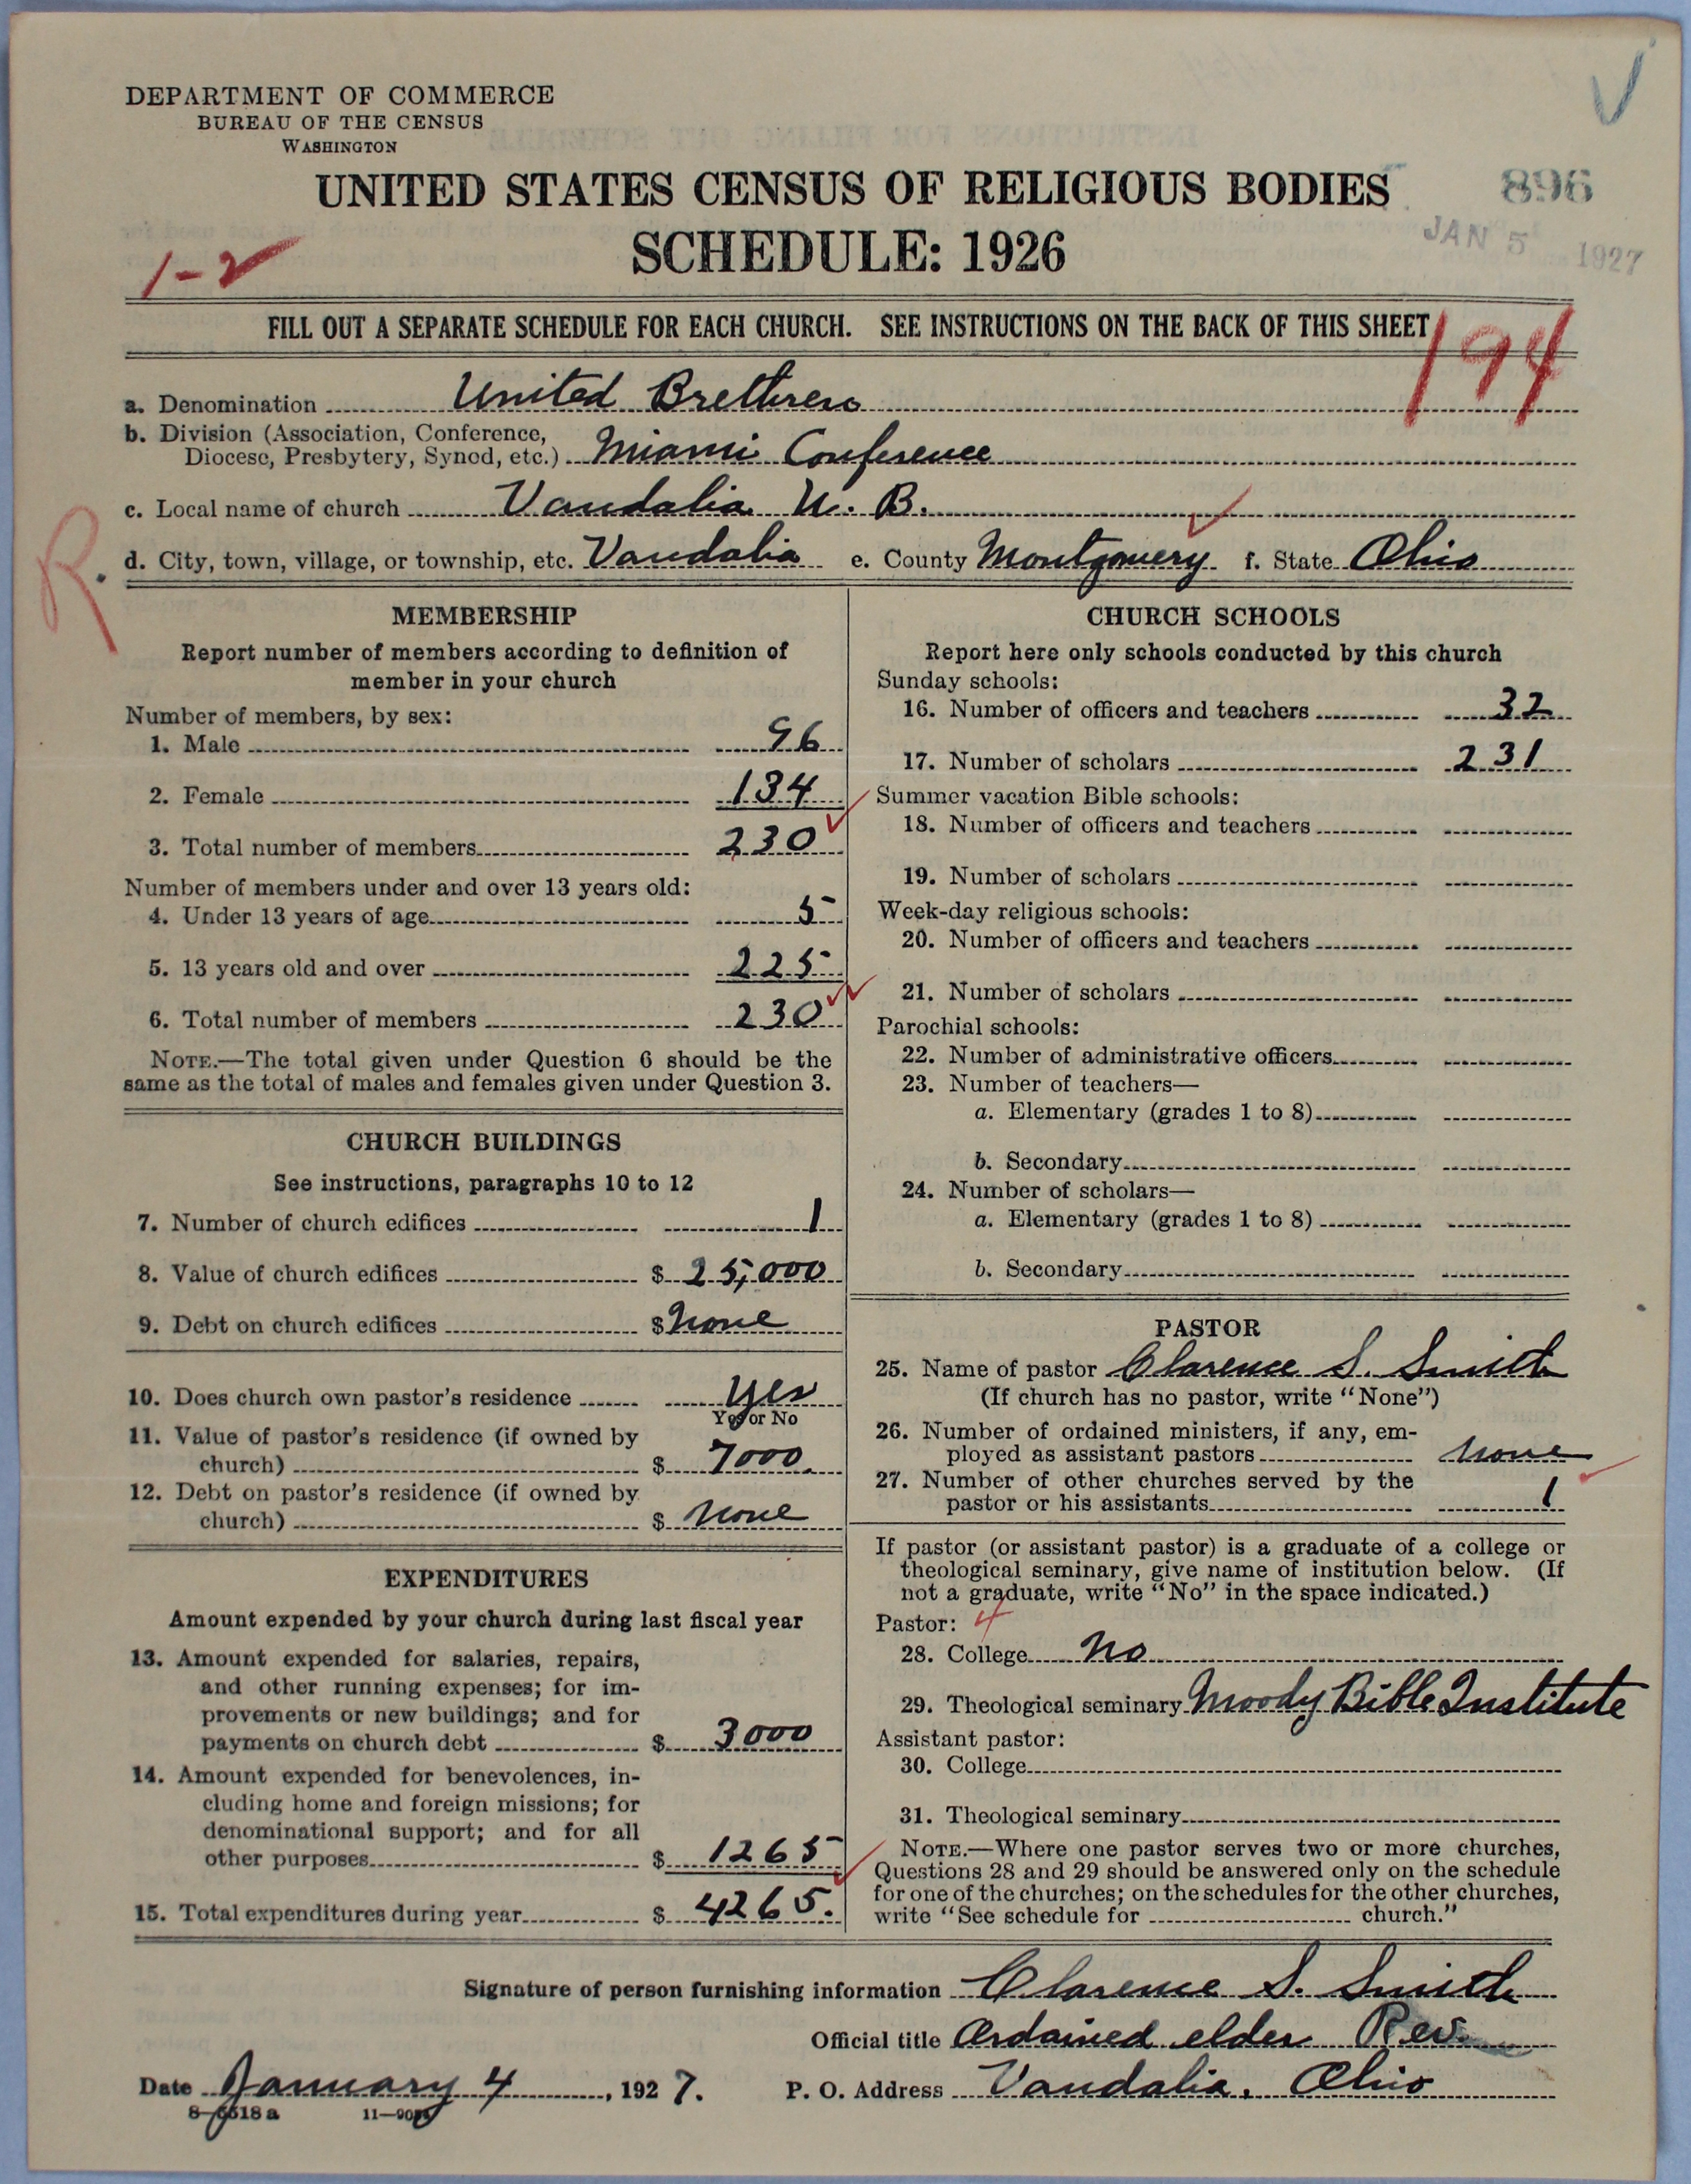 DEPARTMENT OF COMMERCE
BUREAU OF THE CENSUS
WASHINGTON
UNITED STATES CENSUS OF RELIGIOUS BODIES
896
SCHEDULE: 1926
JAN 5 1927
1-2
FILL OUT A SEPARATE SCHEDULE FOR EACH CHURCH. SEE INSTRUCTIONS ON THE BACK OF THIS SHEET
194
a. Denomination United Brethren
b. Division (Association, Conference,
Diocese, Presbytery, Synod, etc.) Miami Conference
c. Local name of church Vandalia U. B.
R.
d. City, town, village, or township, etc. Vandalia e. County Montgomery f. State Ohio
MEMBERSHIP
Report number of members according to definition of
member in your church
Number of members, by sex:
1. Male 96
2. Female 134
3. Total number of members 230
Number of members under and over 13 years old:
4. Under 13 years of age 5
5. 13 years old and over 225
6. Total number of members 230
NOTE.—The total given under Question 6 should be the
same as the total of males and females given under Question 3.
CHURCH BUILDINGS
See instructions, paragraphs 10 to 12
7. Number of church edifices 1
8. Value of church edifices $ 25,000
9. Debt on church edifices $ None
10. Does church own pastor's residence Yes
Yes or No
11. Value of pastor's residence (if owned by
church) $ 7000.
12. Debt on pastor's residence (if owned by
church) $ None
EXPENDITURES
Amount expended by your church during last fiscal year
13. Amount expended for salaries, repairs,
and other running expenses; for im-
provements or new buildings; and for
payments on church debt $ 3000
14. Amount expended for benevolences, in-
cluding home and foreign missions; for
denominational support; and for all
other purposes $ 1265
15. Total expenditures during year $ 4265.
CHURCH SCHOOLS
Report here only schools conducted by this church
Sunday schools:
16. Number of officers and teachers 32
17. Number of scholars 231
Summer vacation Bible schools:
18. Number of officers and teachers
19. Number of scholars
Week-day religious schools:
20. Number of officers and teachers
21. Number of scholars
Parochial schools:
22. Number of administrative officers
23. Number of teachers—
a. Elementary (grades 1 to 8)
b. Secondary
24. Number of scholars—
a. Elementary (grades 1 to 8)
b. Secondary
PASTOR
25. Name of pastor Clarence S. Smith
(If church has no pastor, write "None")
26. Number of ordained ministers, if any, em-
ployed as assistant pastors None
27. Number of other churches served by the
pastor or his assistants 1
If pastor (or assistant pastor) is a graduate of a college or
theological seminary, give name of institution below. (If
not a graduate, write "No" in the space indicated.)
Pastor: 4
28. College No
29. Theological seminary Moody Bible Institute
Assistant pastor:
30. College
31. Theological seminary
NOTE.—Where one pastor serves two or more churches,
Questions 28 and 29 should be answered only on the schedule
for one of the churches; on the schedules for the other churches,
write "See schedule for church."
Signature of person furnishing information Clarence S. Smith
Official title Ordained elder Rev.
Date January 4, 1927. P. O. Address Vandalia, Ohio
8-6518 a 11—